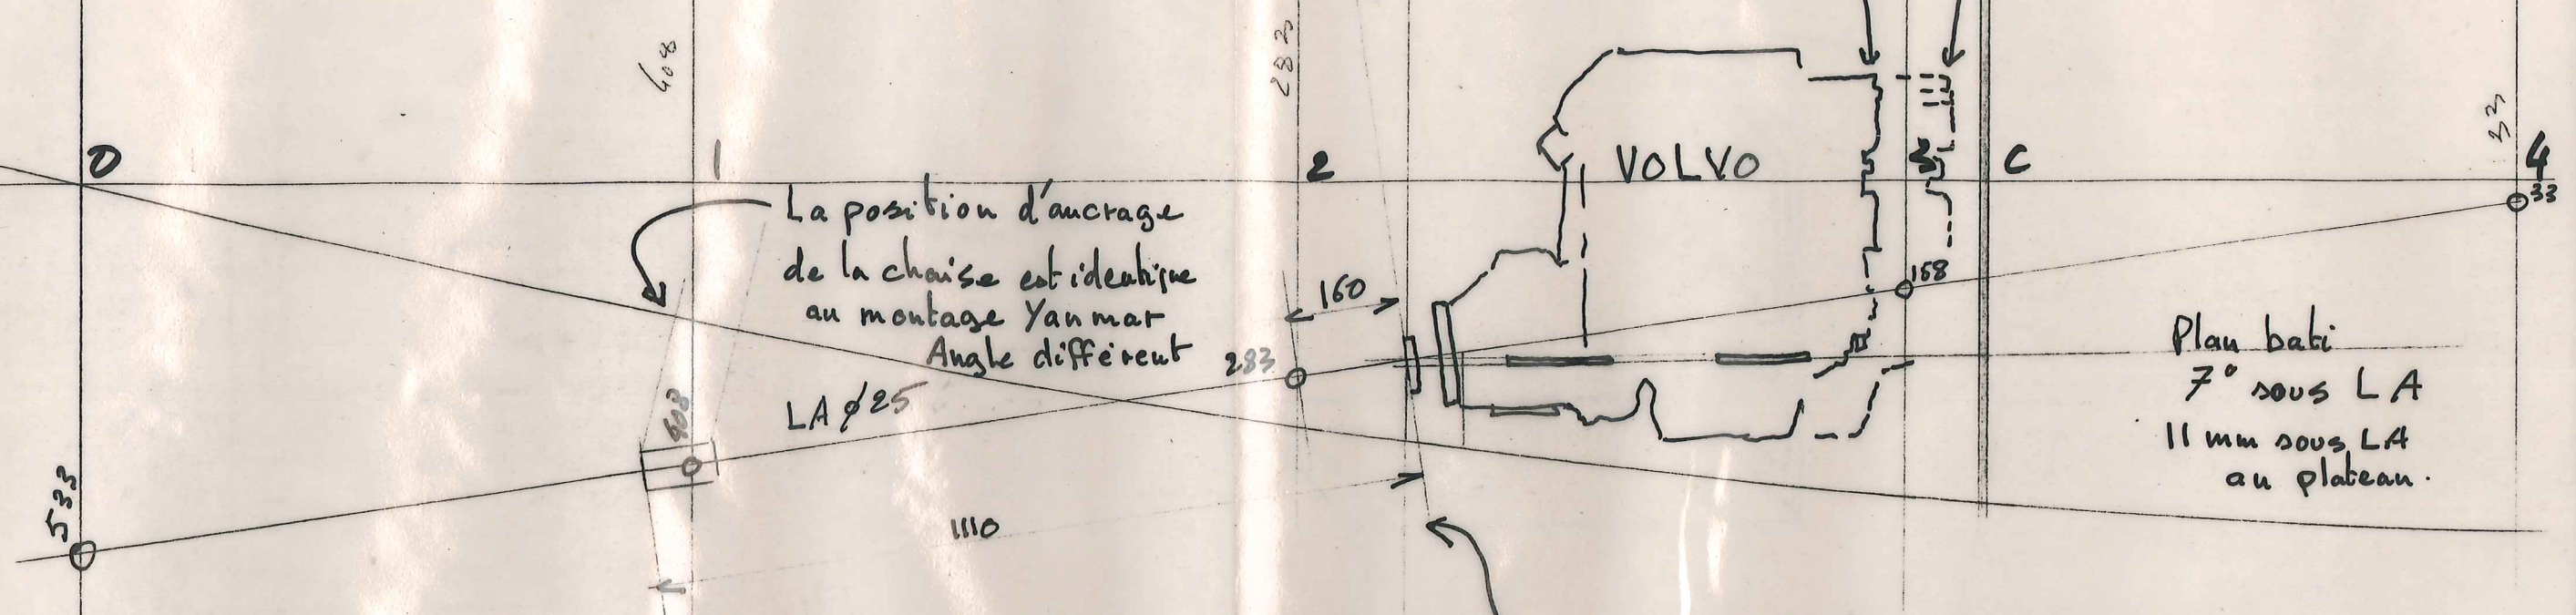 408
283
33
0
1
2
VOLVO
3
C
4
33
La position d'ancrage
de la chaise est identique
au montage Yanmar
Angle différent
158
160
283
Plan bati
7° sous LA
11 mm sous LA
au plateau.
LA ø 25
408
533
1110